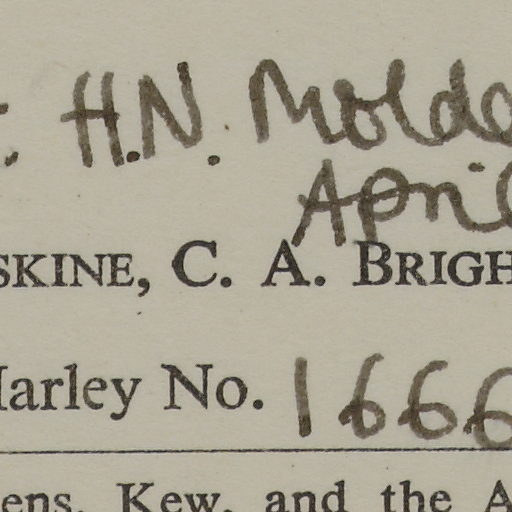 H.N. Molde
April
SKINE, C. A. BRIGH
Harley No. 1666
ens, Kew, and the A